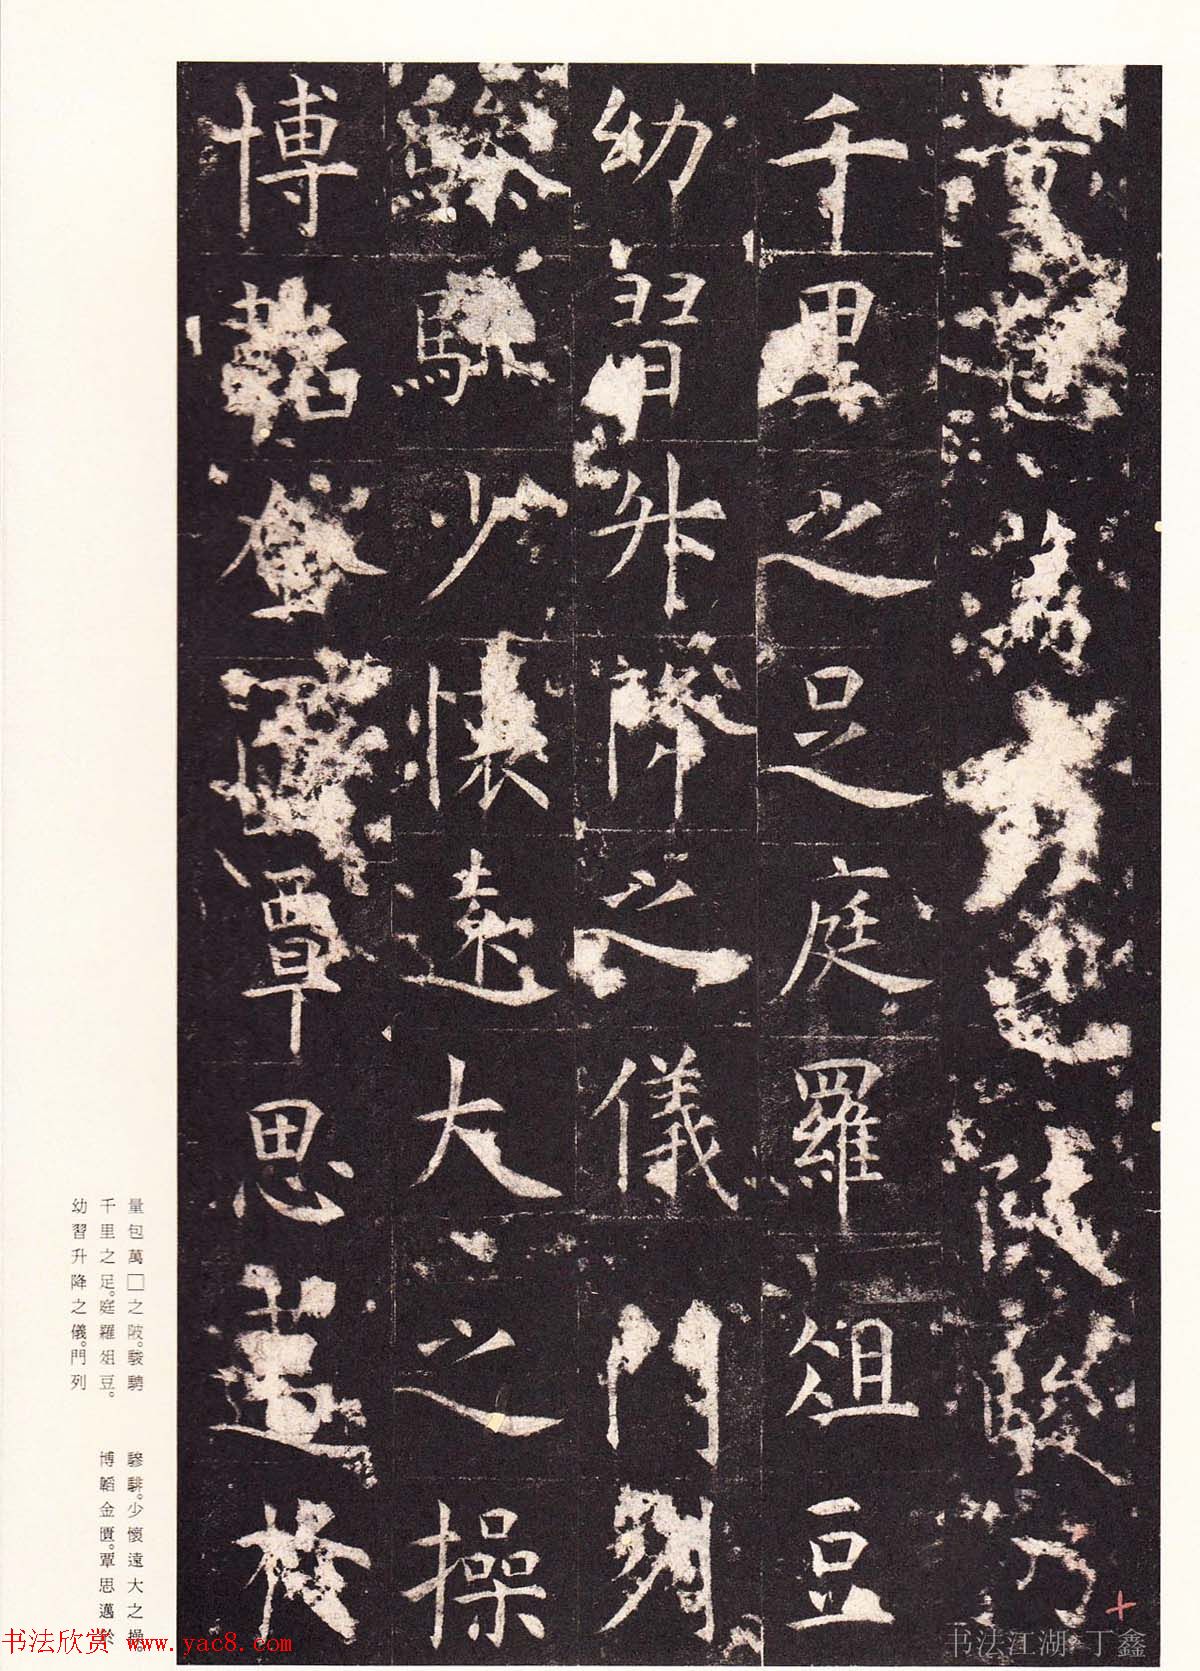 量包萬□之陂駿騁
千里之足庭羅俎豆
幼習升降之儀門列
驂騑少懷遠大之操
博韜金匱覃思邁於
量包萬□之陂。駿騁
千里之足。庭羅俎豆。
幼習升降之儀。門列
驂騑。少懷遠大之操。
博韜金匱。覃思邁於
书法欣赏 www.yac8.com
书法江湖 丁鑫